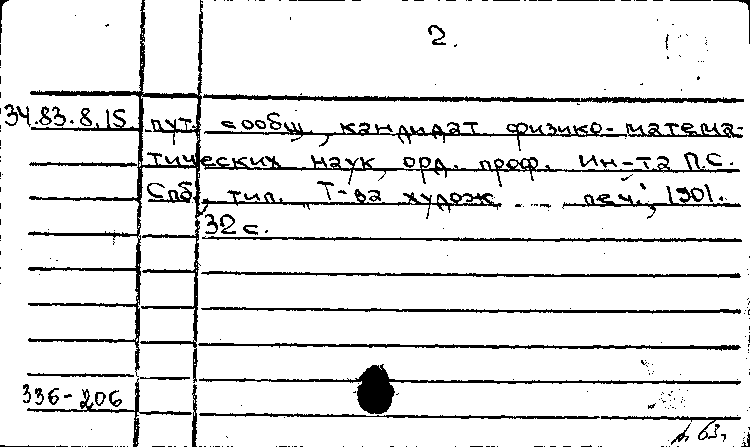 2.
34.83.8.15 пут. сообщ., кандидат физико-матема-
тических наук, орд. проф. Ин-та П.С.
Спб, тип. Т-ва худож. печ., 1901.
32 с.
336-206
63,